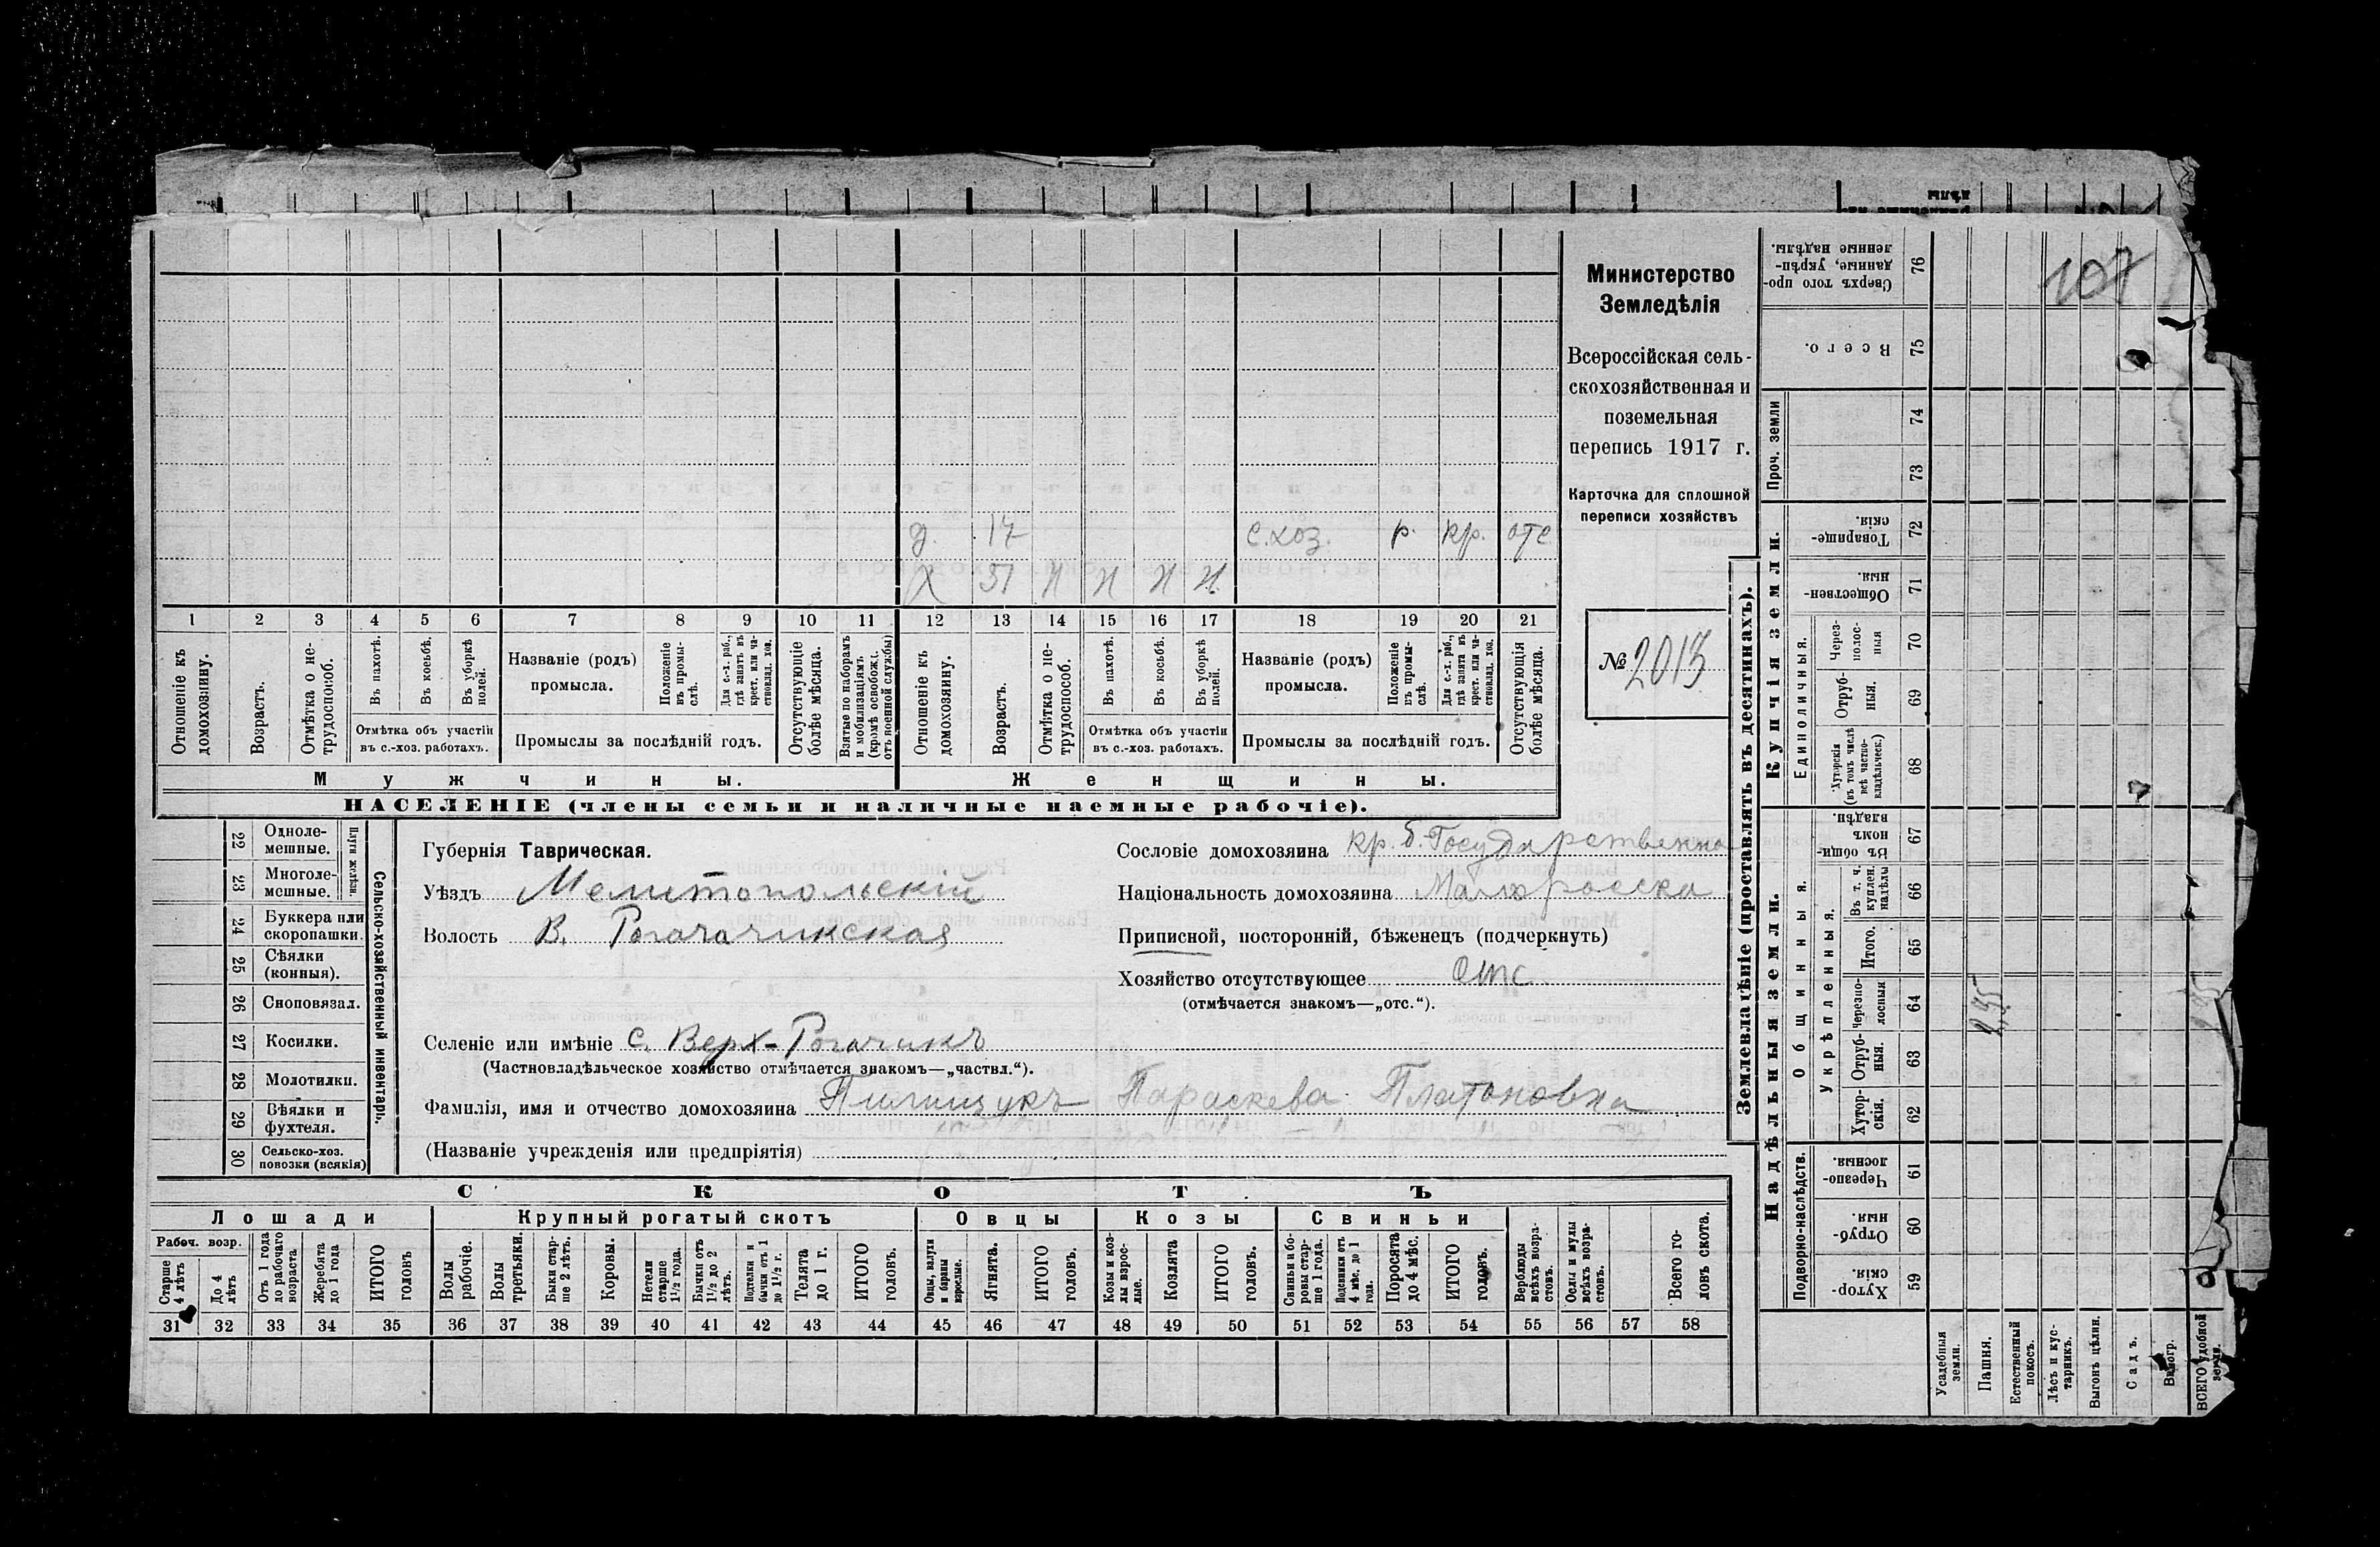 107
Министерство
Земледѣлія
Всероссійская сель-
скохозяйственная и
поземельная
перепись 1917 г.
Карточка для сплошной
переписи хозяйствъ
№ 2013
д. 17 с.хоз. р. кр. отс
Х 51 Н Н Н Н
1 2 3 4 5 6 7 8 9 10 11 12 13 14 15 16 17 18 19 20 21
Отношеніе къ домохозяину.
Возрастъ.
Отмѣтка о не-трудоспособ.
Въ пахотѣ.
Въ косьбѣ.
Въ уборкѣ полей.
Отмѣтка объ участіи
въ с.-хоз. работахъ.
Названіе (родъ)
промысла.
Положеніе въ промы-слѣ.
Для с.-х. раб., гдѣ занятъ въ крест. или ча-стновлад. хоз.
Промыслы за послѣдній годъ.
Отсутствующіе болѣе мѣсяца.
Взятые по наборамъ и мобилизаціямъ (кромѣ освобожд. отъ военной службы)
Отношеніе къ домохозяину.
Возрастъ.
Отмѣтка о не-трудоспособ.
Въ пахотѣ.
Въ косьбѣ.
Въ уборкѣ полей.
Отмѣтка объ участіи
въ с.-хоз. работахъ.
Названіе (родъ)
промысла.
Положеніе въ промы-слѣ.
Для с.-х. раб., гдѣ занята въ крест. или ча-стновлад. хоз.
Промыслы за послѣдній годъ.
Отсутствующія болѣе мѣсяца.
Мужчины.
Женщины.
НАСЕЛЕНІЕ (члены семьи и наличные наемные рабочіе).
22 Одноле-мешные.
23 Многоле-мешные.
Плуги желѣзн.
24 Буккера или скоропашки.
25 Сѣялки (конныя).
26 Сноповязал.
27 Косилки.
28 Молотилки.
29 Вѣялки и фухтеля.
30 Сельско-хоз. повозки (всякія)
Сельско-хозяйственный инвентарь.
Губернія Таврическая.
Уѣздъ Мелитопольскій
Волость В. Рогачикская
Сословіе домохозяина кр. б. Государственна
Національность домохозяина Малоросска
Приписной, посторонній, бѣженецъ (подчеркнуть)
Хозяйство отсутствующее Отс
(отмѣчается знакомъ—„отс.“).
Селеніе или имѣніе с. Верх-Рогачикъ
(Частновладѣльческое хозяйство отмѣчается знакомъ—„частвл.“).
Фамилія, имя и отчество домохозяина Пилищукъ Параскева Платоновна
(Названіе учрежденія или предпріятія)
СКОТЪ
Лошади
Крупный рогатый скотъ
Овцы
Козы
Свиньи
Рабоч. возр.
Старше 4 лѣтъ
До 4 лѣтъ
Отъ 1 года до рабочаго возраста
Жеребята до 1 года
ИТОГО головъ
Волы рабочіе.
Волы третьяки.
Быки стар-ше 2 лѣтъ.
Коровы.
Нетели старше 1½ года.
Бычки отъ 1½ до 2 лѣтъ.
Подтелки и бычки отъ 1 до 1½ г.
Телята до 1 г.
ИТОГО головъ.
Овцы, валухи и бараны взрослые.
Ягнята.
ИТОГО головъ.
Козы и коз-лы взрос-лые.
Козлята
ИТОГО головъ.
Свиньи и бо-ровы стар-ше 1 года.
Подсвинки отъ 4 мѣс. до 1 года.
Поросята до 4 мѣс.
ИТОГО головъ.
Верблюды всѣхъ возра-стовъ.
Ослы и мулы всѣхъ возра-стовъ.
Всего го-ловъ скота.
31 32 33 34 35 36 37 38 39 40 41 42 43 44 45 46 47 48 49 50 51 52 53 54 55 56 57 58
Землевладѣніе (проставлять въ десятинахъ).
Купчія земли.
Надѣльныя земли.
Сверхъ того про-данные, укрѣп-ленные надѣлы. 76
Всего. 75
Проч. земли
74
73
Товарище-скія. 72
Обществен-ныя. 71
Единоличныя.
Через-полос-ныя 70
Отруб-ныя. 69
Хуторскія (въ томъ числѣ всѣ частно-владѣльческ.) 68
Въ общин-номъ владѣн. 67
Общинныя.
Укрѣпленныя.
Въ т. ч. куплен. надѣлы 66
Итого. 65
Черезпо-лосныя 64
Отруб-ныя. 63
Хутор-скія. 62
Подворно-наслѣдств.
Черезпо-лосныя. 61
Отруб-ныя. 60
Хутор-скія. 59
Усадебныя земли.
Пашня.
Естественный покосъ.
Лѣсъ и кус-тарникъ.
Выгонъ цѣлин.
Садъ.
Виногр.
ВСЕГО удобной земли.